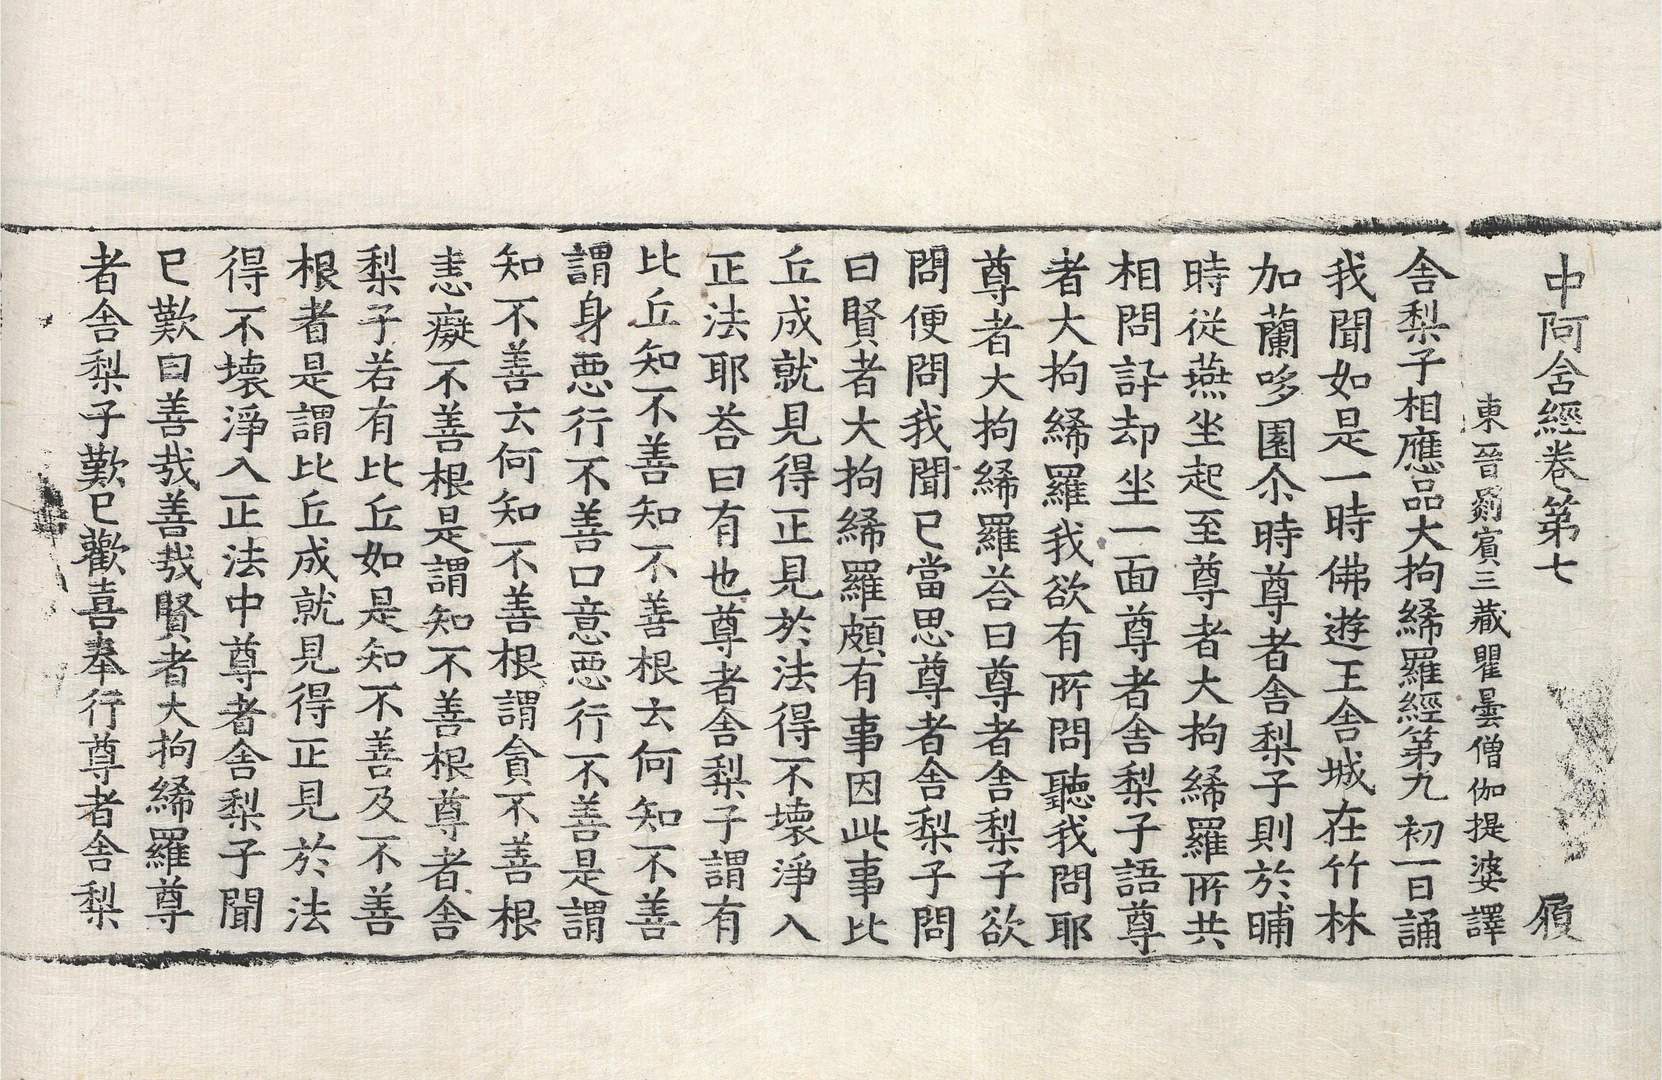 中阿含經卷第七 履
東晉罽賓三藏瞿曇僧伽提婆譯
舎梨子相應品大拘絺羅經第九 初一日誦
我聞如是一時佛遊王舎城在竹林
加蘭哆園尒時尊者舎梨子則於晡
時従燕坐起至尊者大拘絺羅所共
相問訊却坐一面尊者舎梨子語尊
者大拘絺羅我欲有所問聽我問耶
尊者大拘絺羅荅曰尊者舎梨子欲
問便問我聞已當思尊者舎梨子問
曰賢者大拘絺羅頗有事因此事比
丘成就見得正見於法得不壞淨入
正法耶荅曰有也尊者舎梨子謂有
比丘知不善知不善根云何知不善
謂身惡行不善口意惡行不善是謂
知不善云何知不善根謂貪不善根
恚癡不善根是謂知不善根尊者舎
梨子若有比丘如是知不善及不善
根者是謂比丘成就見得正見於法
得不壞淨入正法中尊者舎梨子聞
已歎曰善㢤善㢤賢者大拘絺羅尊
者舎梨子歎已歡喜奉行尊者舎梨